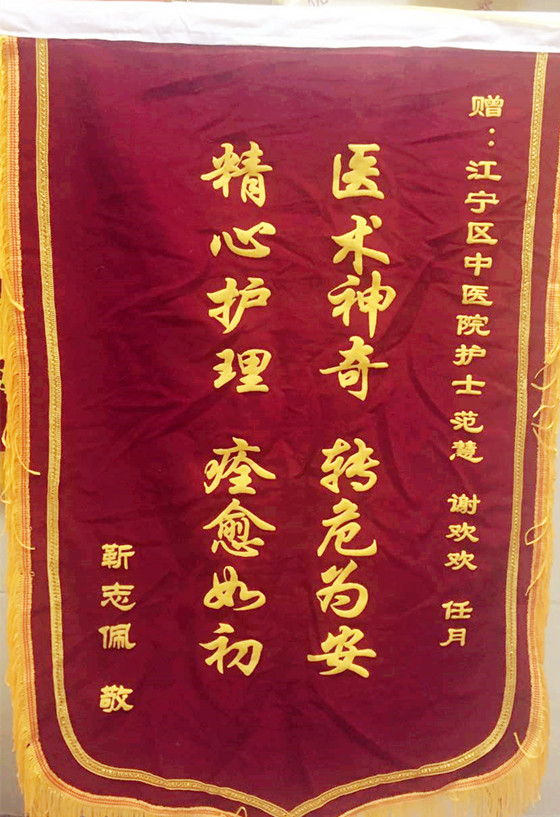 赠：江宁区中医院护士范慧 谢欢欢 任月
医术神奇 转危为安
精心护理 痊愈如初
靳志佩 敬